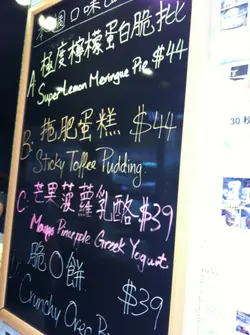 本週口味
A. 極度檸檬蛋白脆批 $44
Super Lemon Meringue Pie
B. 拖肥蛋糕 $44
Sticky Toffee Pudding
C. 芒果菠蘿乳酪 $39
Mango Pineapple Greek Yogurt
脆〇餅 $39
Crunchy Oreo
30 秒